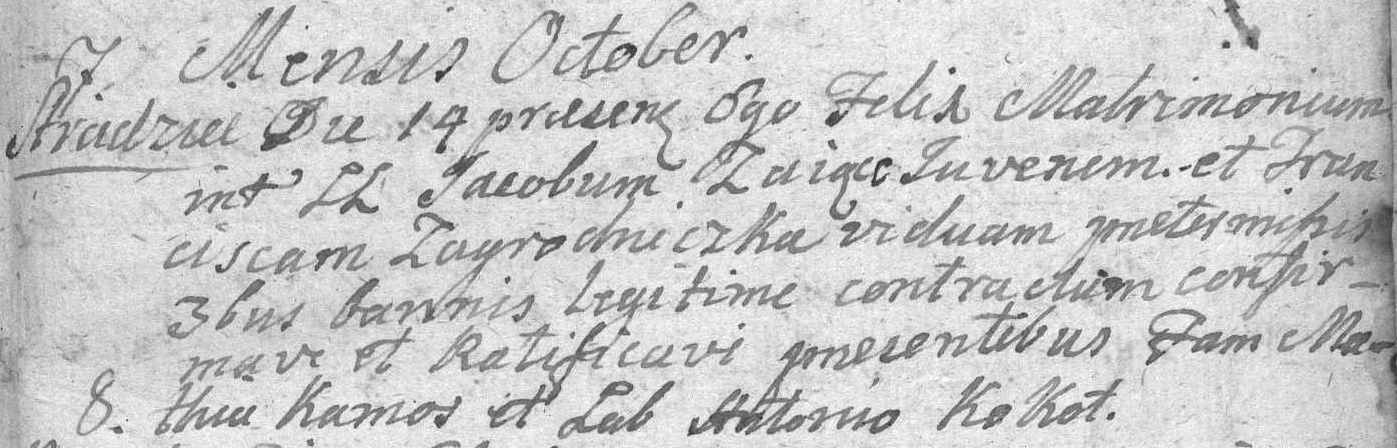 7 Mensis October.
Die 14 præsens Ego Felix Matrimonium
int LL Jacobum Zaiąc Juvenem et Fran
ciscam Zagrodniczka viduam prætermissis
3bus bannis legitime contractum confir-
mavi et Ratificavi presentibus Fam Ma-
8. thia Kamos et Lab Antonio Kokot.